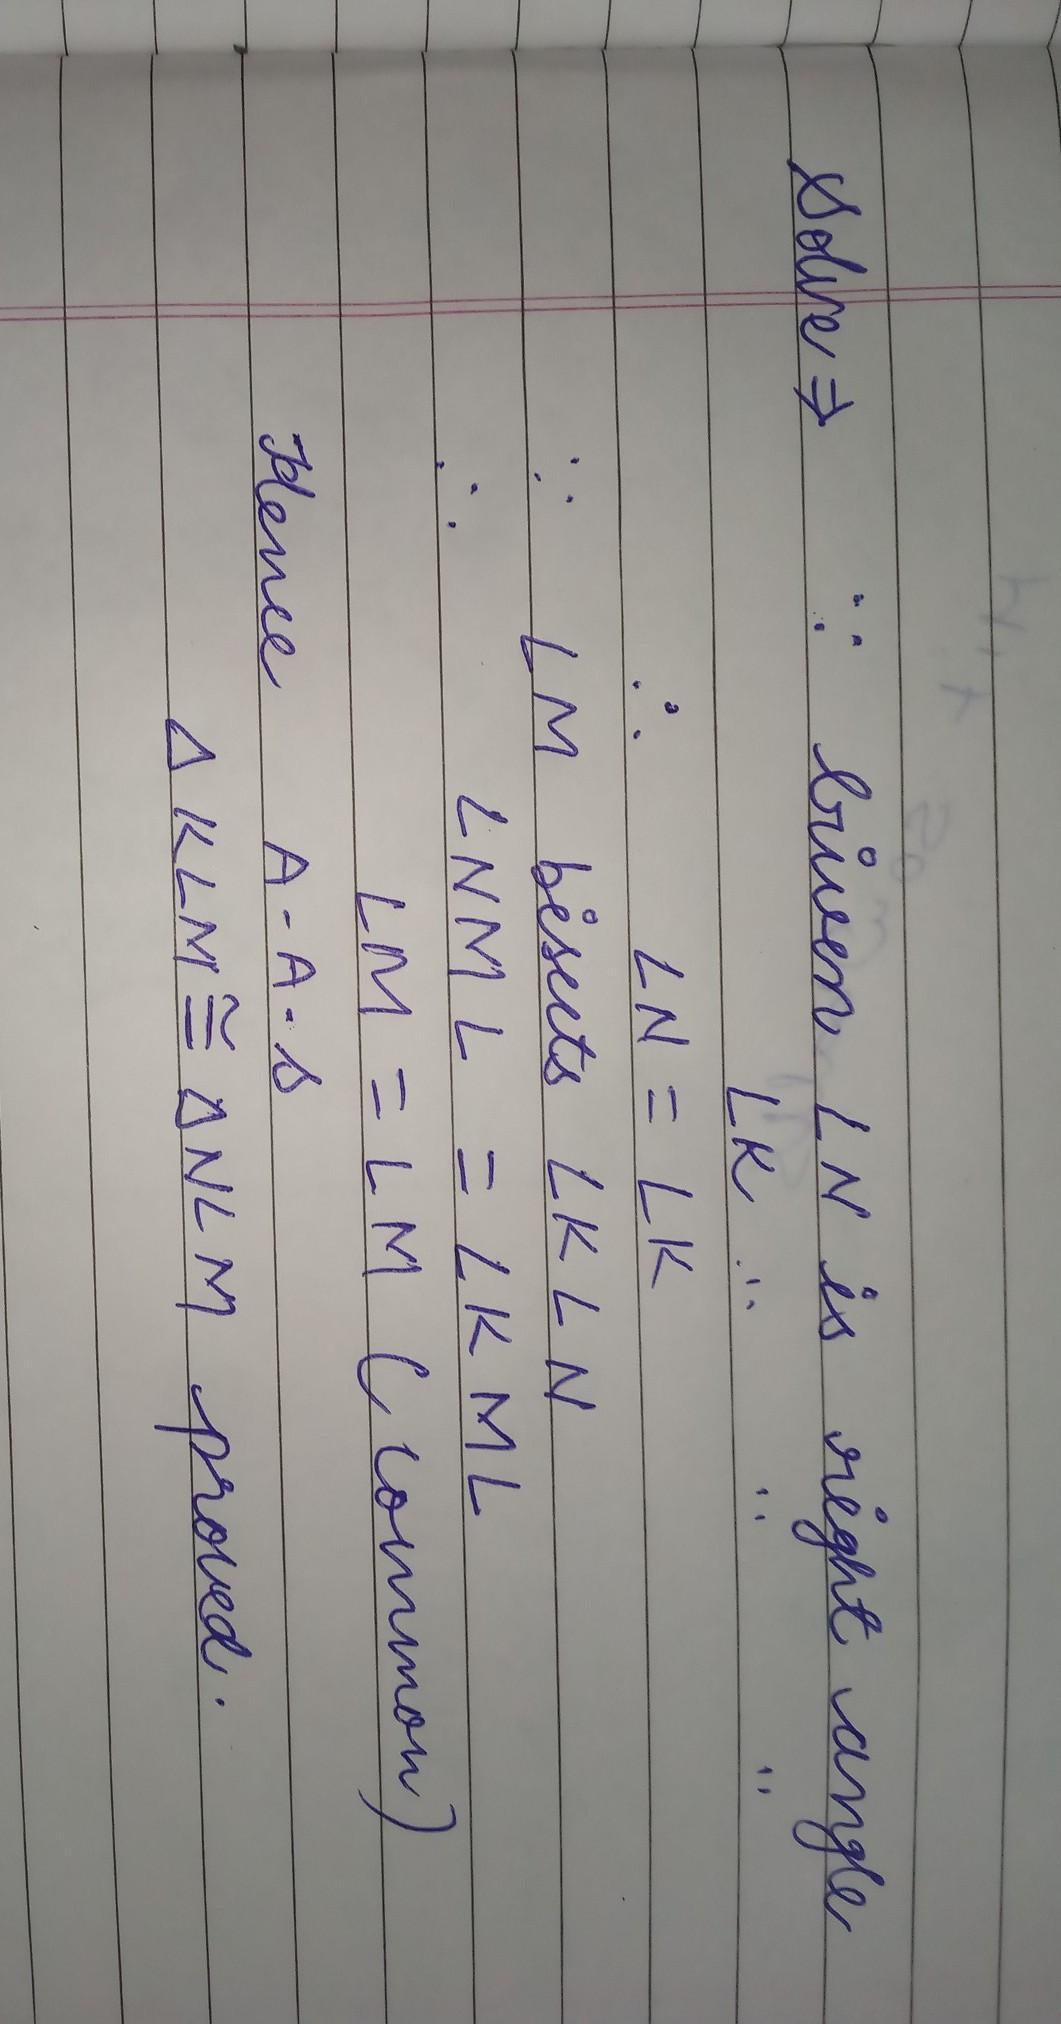 Solve ⇒ ∵ Given ∠N is right angle
∠K ∵ " "
∴ ∠N = ∠K
∵ LM bisects ∠KLN
∴ ∠NML = ∠KML
LM = LM (common)
Hence A-A-S
Δ KLM ≅ ΔNLM proved.